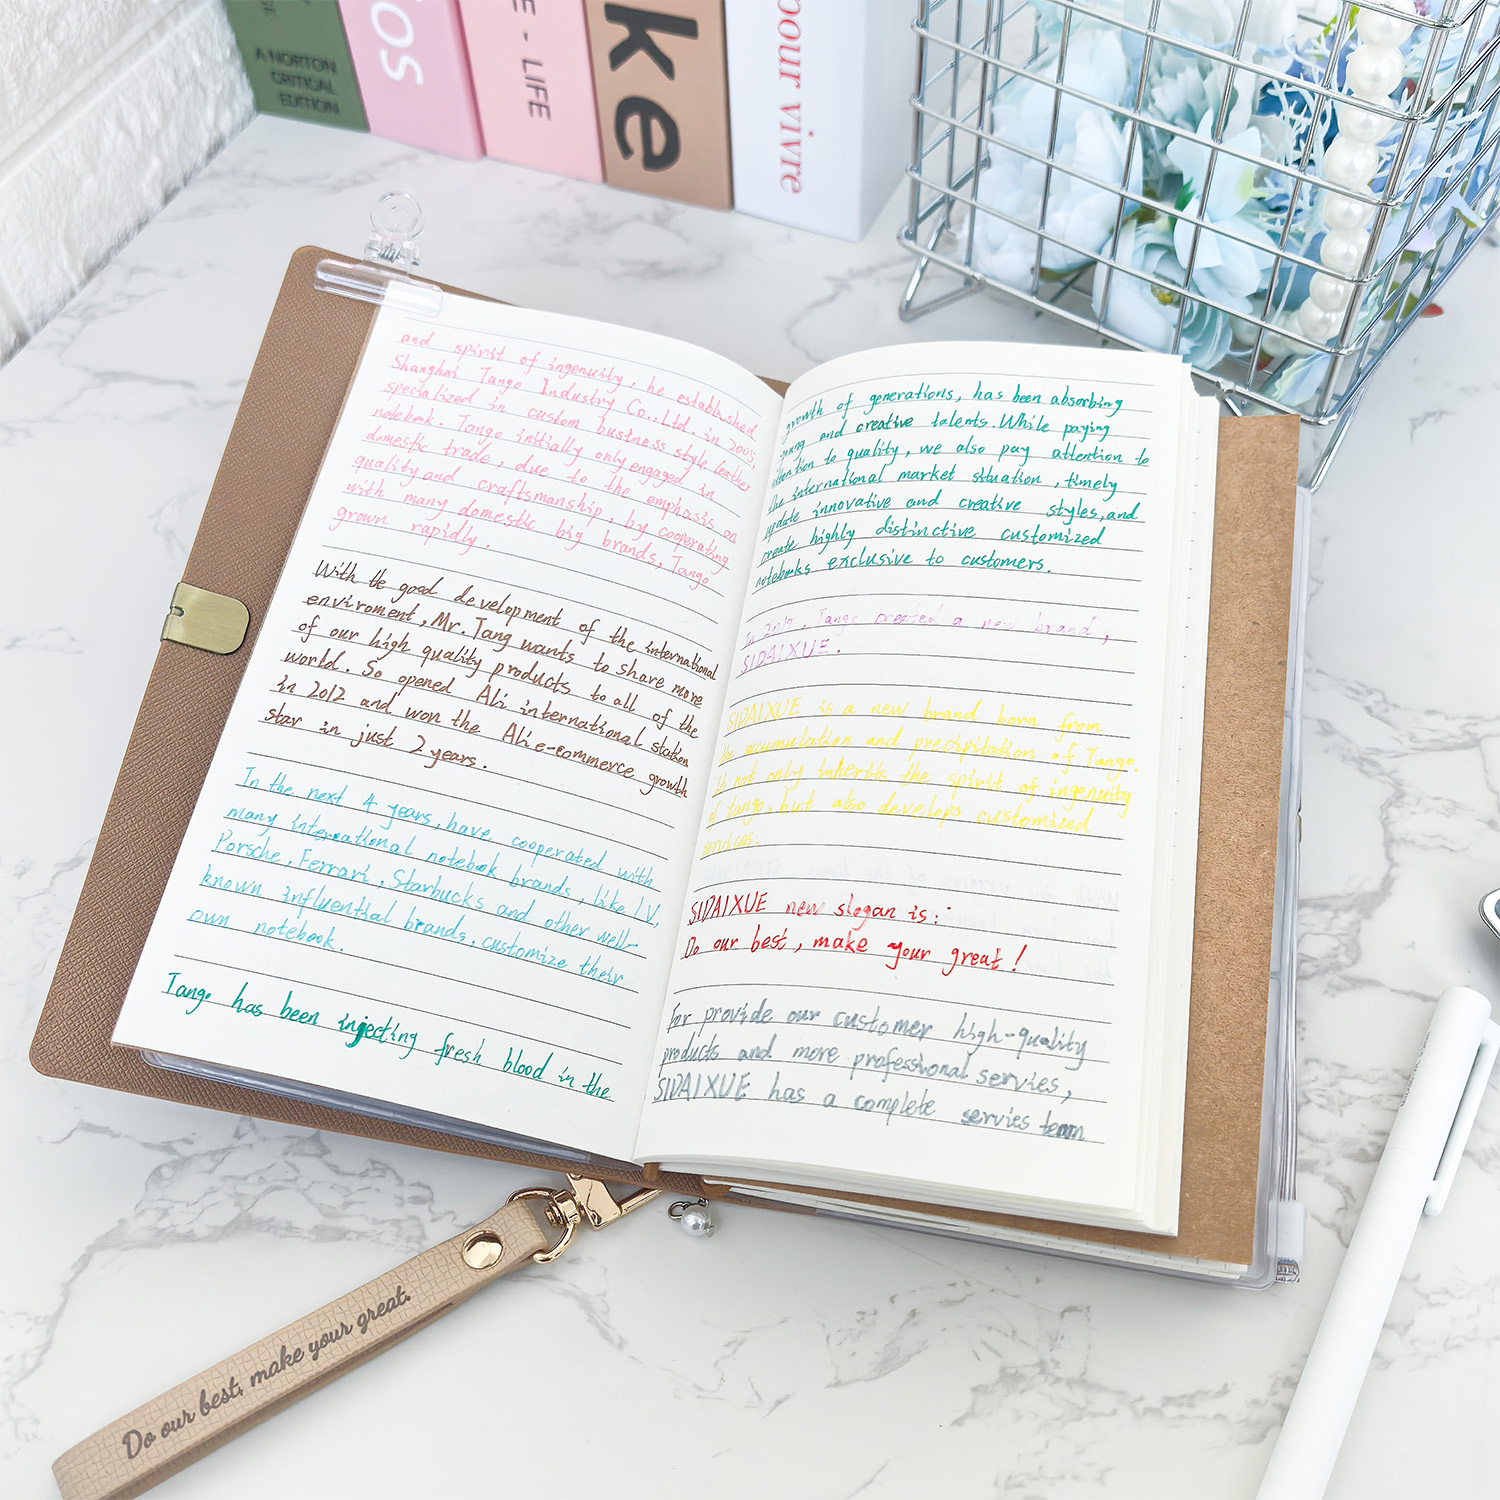 A NORTON
CRITICAL
EDITION
OS
E - LIFE
ke
pour vivre
and spirit of ingenuity, he established
Shanghai Tango Industry Co., Ltd. in 2005,
specialized in custom business style leather
notebook. Tango initially only engaged in
domestic trade, due to the emphasis on
quality and craftsmanship, by cooperating
with many domestic big brands, Tango
grown rapidly.
With the good development of the international
enviroment, Mr. Tang wants to share more
of our high quality products to all of the
world. So opened Ali international station
in 2012 and won the Ali e-commerce growth
star in just 2 years.
In the next 4 years, have cooperated with
many international notebook brands, like LV,
Porsche, Ferrari, Starbucks and other well-
known influential brands, customize their
own notebook.
Tango has been injecting fresh blood in the
growth of generations, has been absorbing
young and creative talents. While paying
attention to quality, we also pay attention to
the international market situation, timely
update innovative and creative styles, and
create highly distinctive customized
notebooks exclusive to customers.
In 2019, Tango created a new brand,
SIDAIXUE.
SIDAIXUE is a new brand born from
the accumulation and precipitation of Tango.
It not only inherits the spirit of ingenuity
of tango, but also develops customized
services.
SIDAIXUE new slogan is:
Do our best, make your great!
For provide our customer high-quality
products and more professional servies,
SIDAIXUE has a complete servies team
Do our best, make your great.